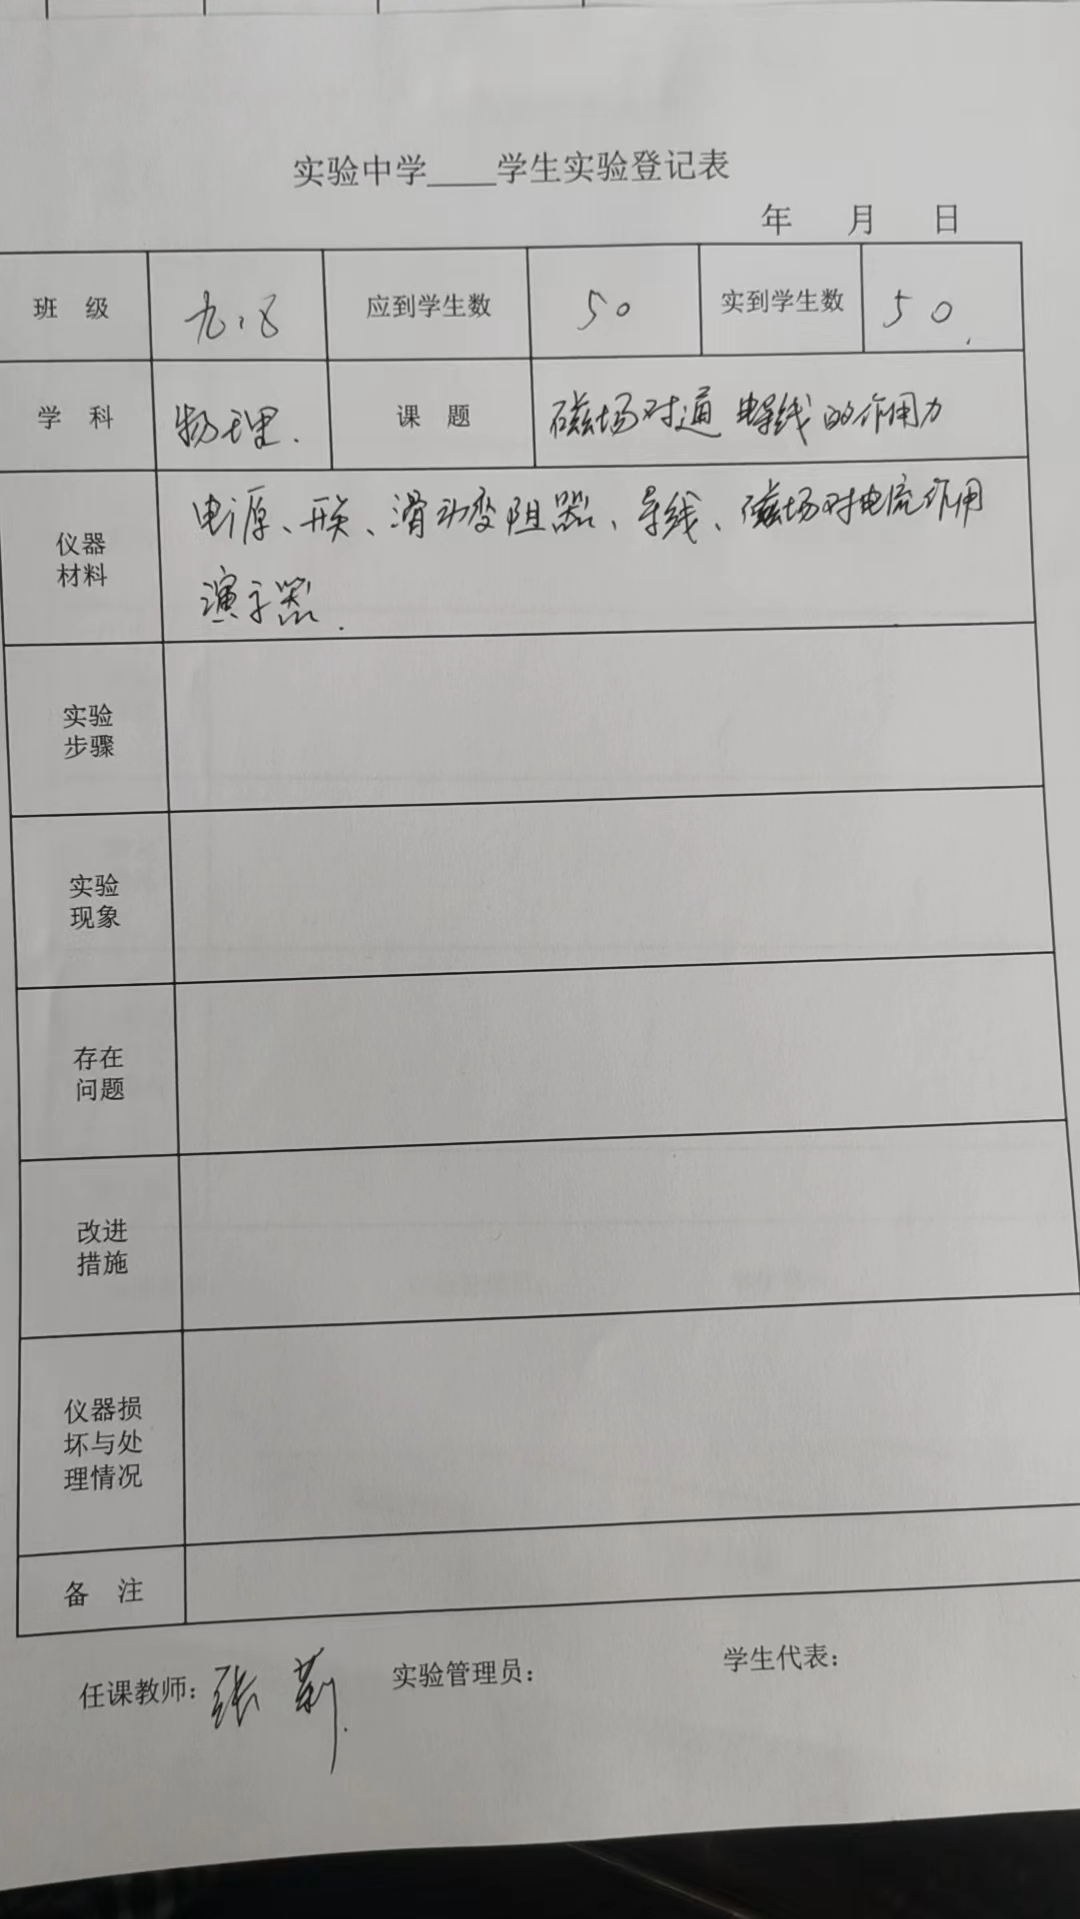 实验中学____学生实验登记表
年 月 日
班 级 九.8 应到学生数 50 实到学生数 50.
学 科 物理. 课 题 磁场对通电导线的作用力
仪器材料 电源、开关、滑动变阻器、导线、磁场对电流作用
演示器.
实验
步骤
实验
现象
存在
问题
改进
措施
仪器损
坏与处
理情况
备 注
任课教师：张莉. 实验管理员： 学生代表：